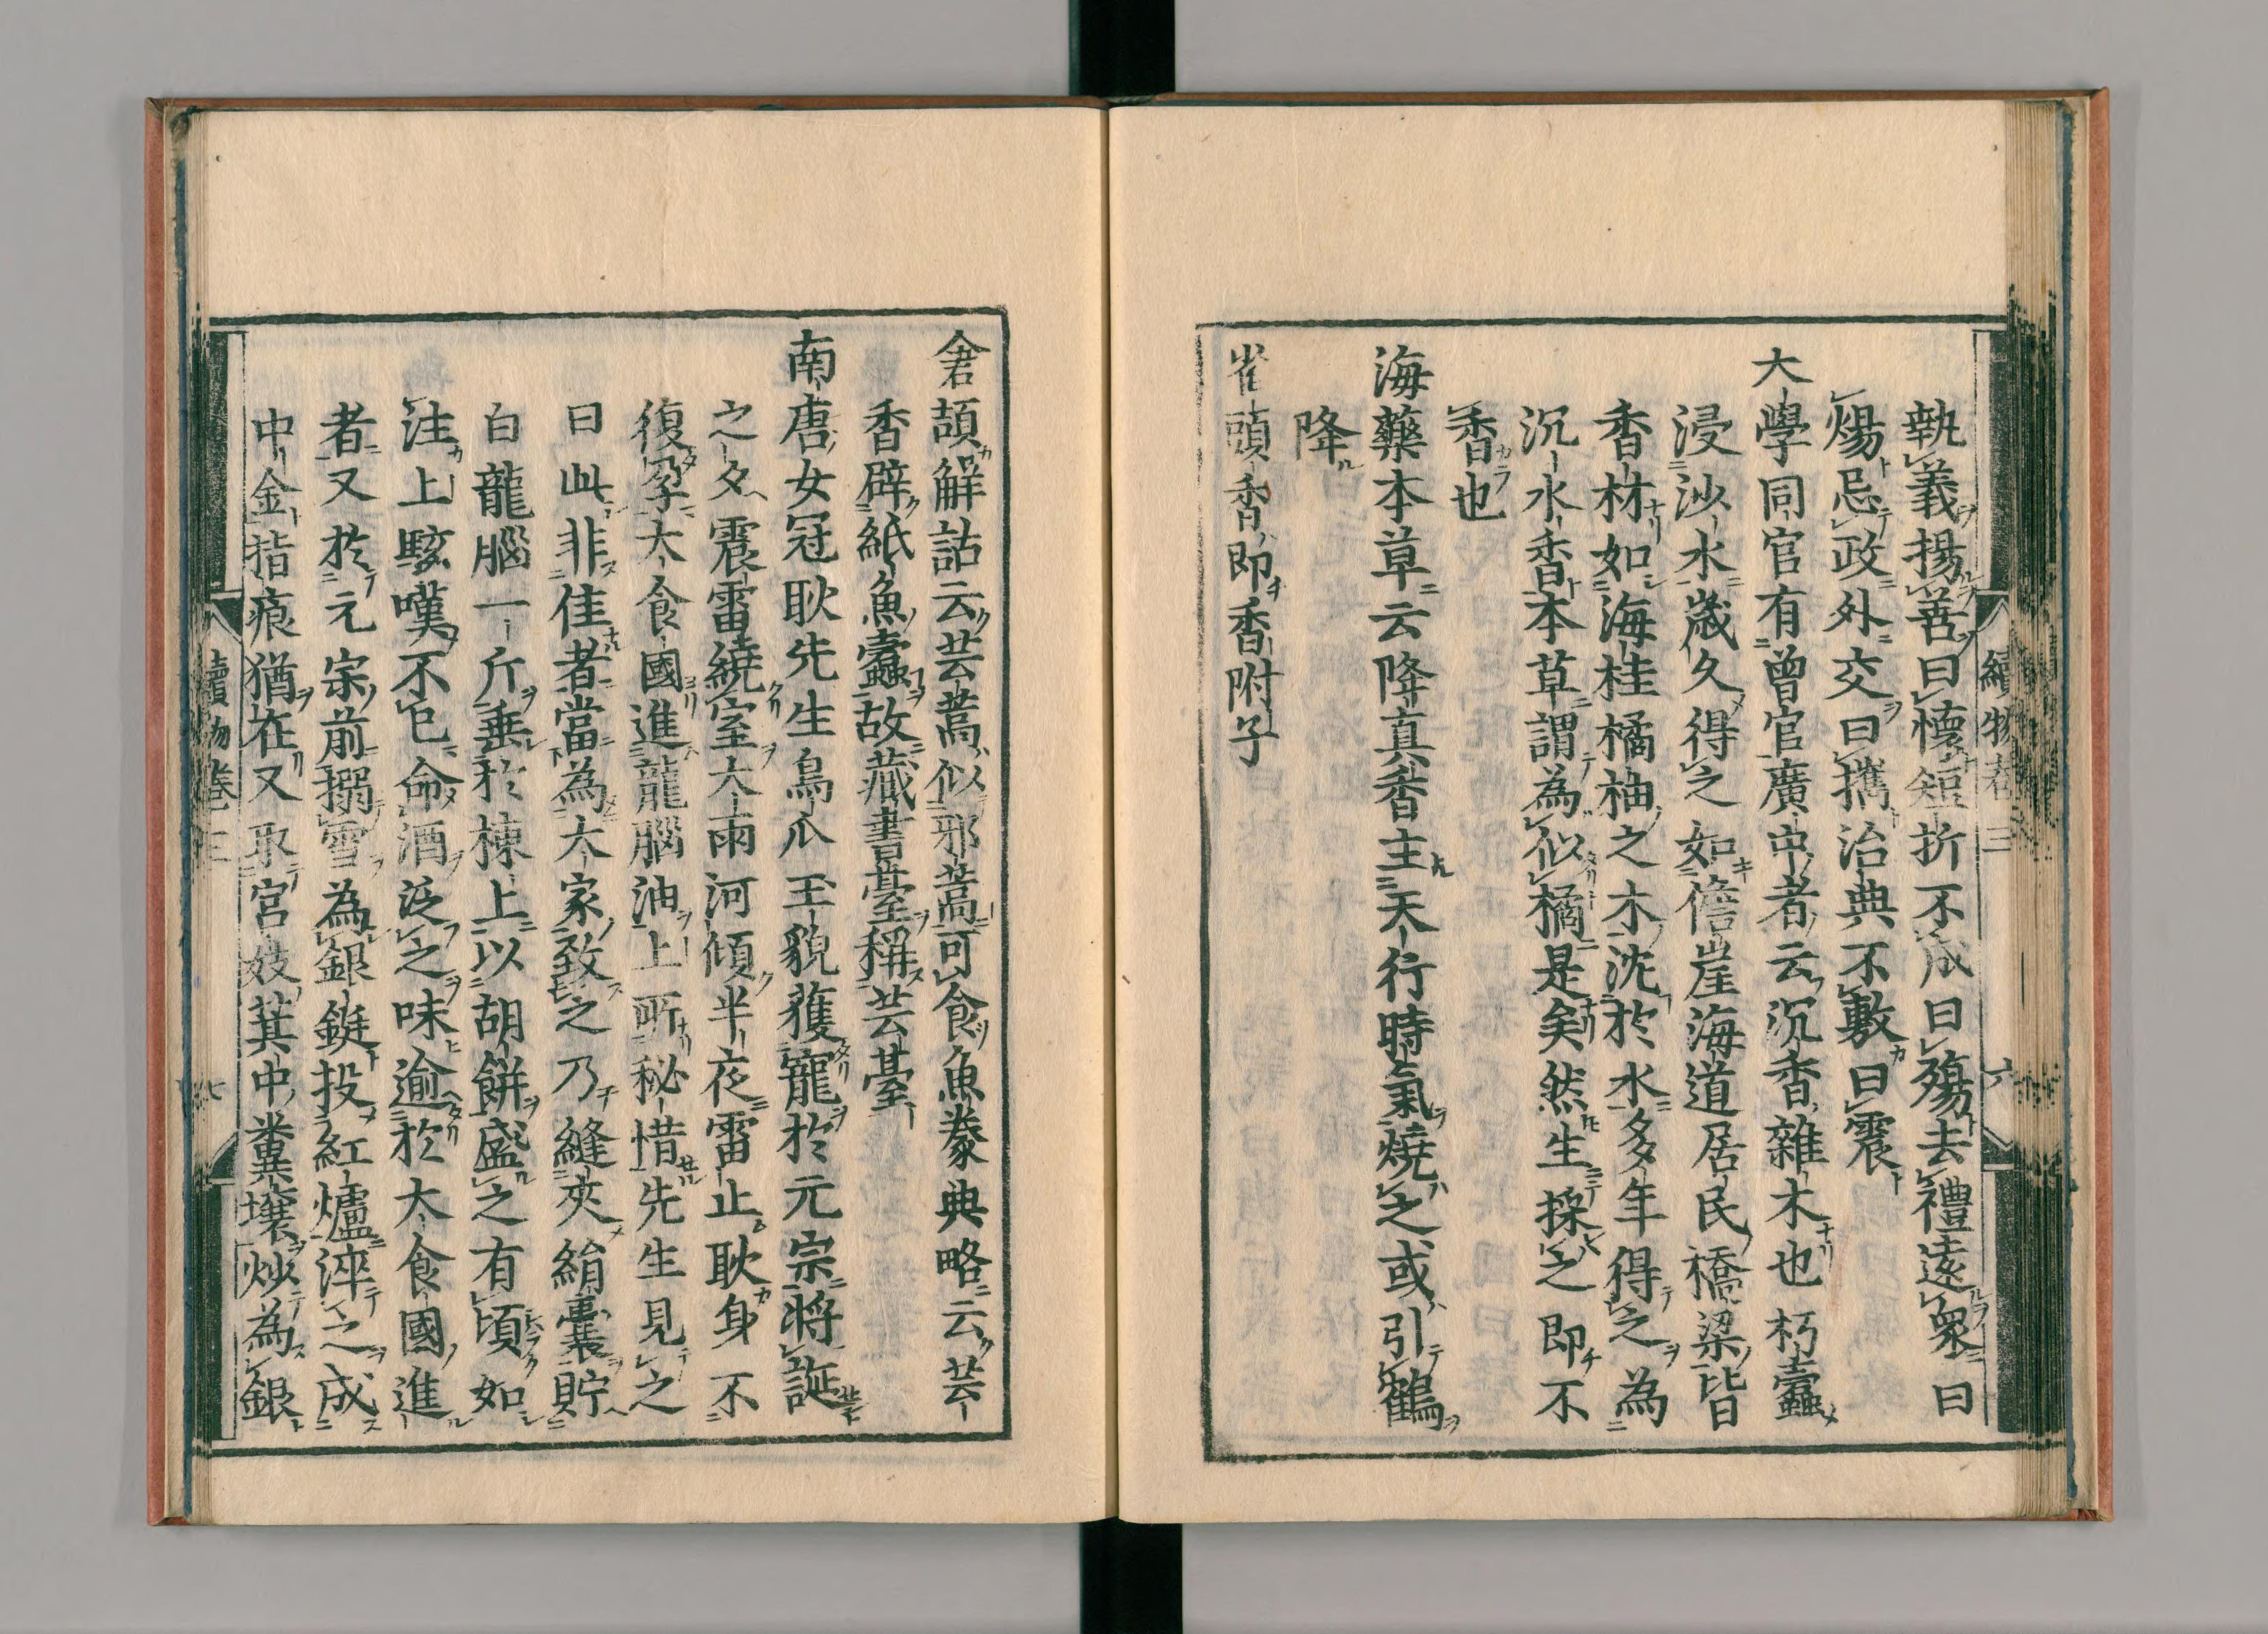 執義揚善曰懷短折不成曰殤去禮遠眾曰
煬忌政外交曰攜治典不敷曰震
大學同官有曾官廣中者云沉香雜木也朽蠹
浸沙水歲久得之如儋崖海道居民橋梁皆
香材如海桂橘柚之木沈於水多年得之為
沉水香本草謂為似橘是矣然生採之即不
香也
海藥本草云降真香主天行時氣燒之或引鶴
降
雀頭香即香附子
續物志三 六
倉頡解詁云芸蒿似邪蒿可食魚豢典略云芸
香辟紙魚蠹故藏書臺稱芸臺
南唐女冠耿先生鳥爪玉貌獲寵於元宗將誕
之夕震雷繞室大雨河傾半夜雷止耿身不
復孕大食國進龍腦油上所秘惜先生見之
曰此非佳者當為大家致之乃縫夾絹囊貯
白龍腦一斤垂於棟上以胡餅盛之有頃如
注上駭嘆不已命酒泛之味逾於大食國進
者又於元宗前搦雪為銀鋌投紅爐淬之成
中金指痕猶在又取宮妓其中糞壤炒為銀
續物卷三 七